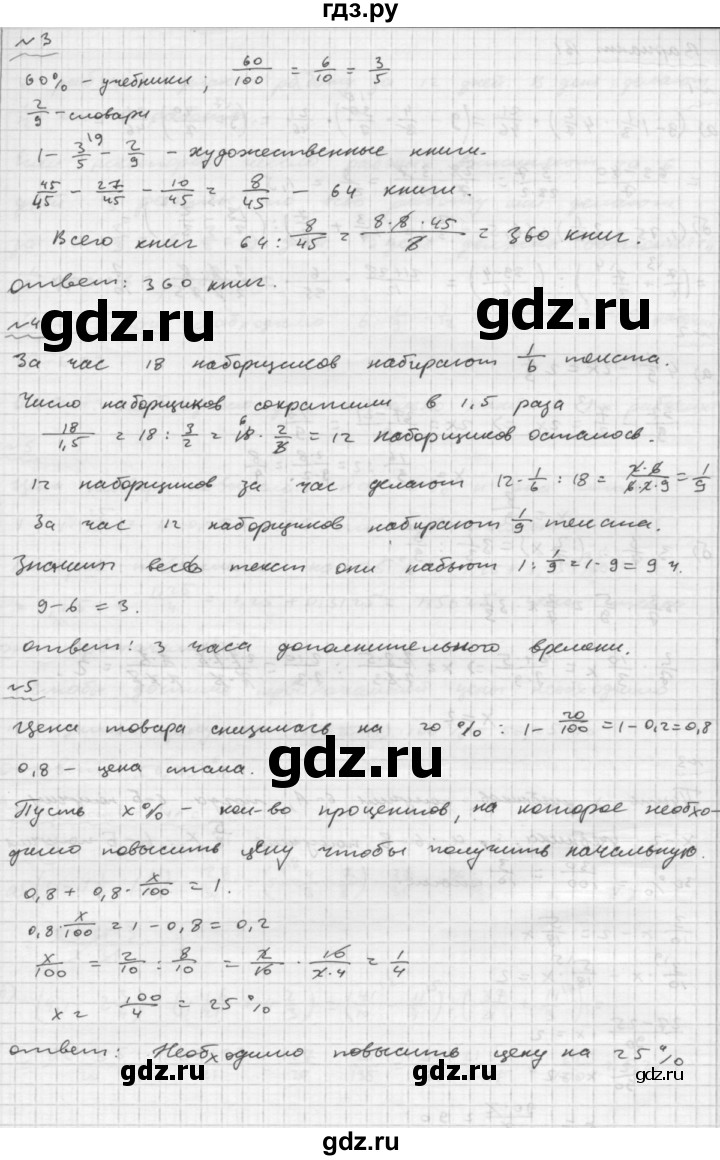 гдз.ру
№3
60% – учебники; 60/100 = 6/10 = 3/5
2/9 – словари
1 – 3/5 – 2/9 – художественные книги.
45/45 – 27/45 – 10/45 = 8/45 – 64 книги.
Всего книг 64 : 8/45 = 8·8·45/8 = 360 книг.
ответ: 360 книг.
gdz.ru gdz.ru
№4
За час 18 наборщиков набирают 1/6 текста.
Число наборщиков сократили в 1,5 раза
18/1,5 = 18 : 3/2 = 18 · 2/3 = 12 наборщиков осталось.
12 наборщиков за час делают 12 · 1/6 : 18 = 2·6/6·2·9 = 1/9
За час 12 наборщиков набирают 1/9 текста.
Значит весь текст они набьют 1 : 1/9 = 1 · 9 = 9 ч.
9 – 6 = 3.
ответ: 3 часа дополнительного времени.
№5
Цена товара снизилась на 20% : 1 – 20/100 = 1 – 0,2 = 0,8
0,8 – цена стала.
gdz.ru
Пусть x% – кол-во процентов, на которое необхо-
димо повысить цену чтобы получить начальную.
0,8 + 0,8 · x/100 = 1.
0,8 · x/100 = 1 – 0,8 = 0,2
x/100 = 2/10 : 8/10 = 2/10 · 10/2·4 = 1/4
x = 100/4 = 25%
ответ: Необходимо повысить цену на 25%
gdz.ru gdz.ru
gdz.ru